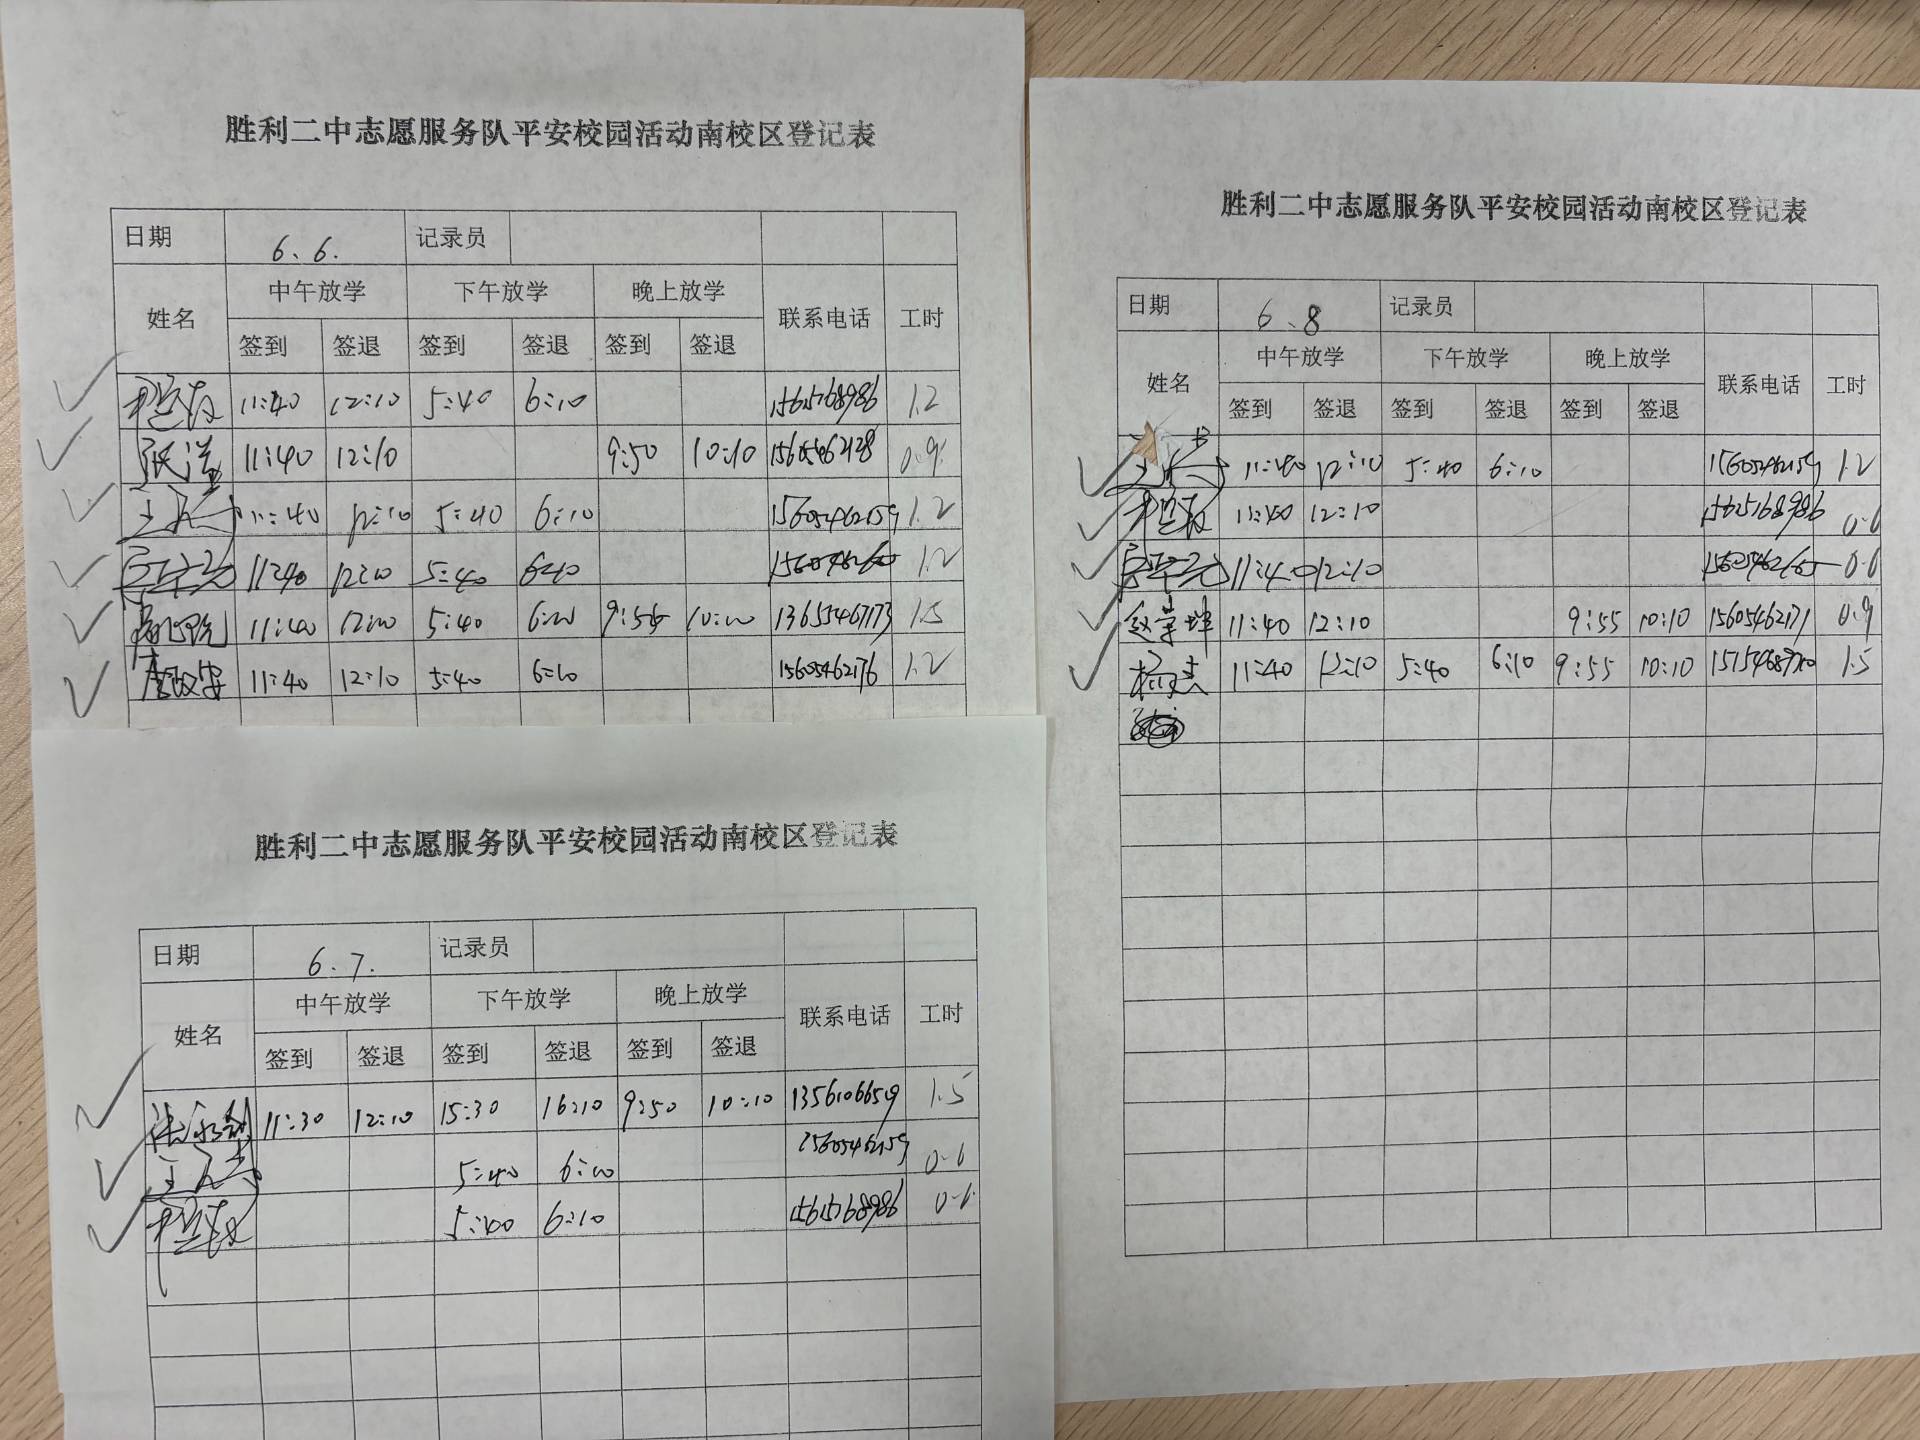 胜利二中志愿服务队平安校园活动南校区登记表
日期 6.6. 记录员
姓名 中午放学 下午放学 晚上放学 联系电话 工时
签到 签退 签到 签退 签到 签退
11:40 12:10 5:40 6:10 15615768986 1.2
张溢 11:40 12:10 9:50 10:10 15605462128 0.9
11:40 12:10 5:40 6:10 15605462159 1.2
11:40 12:10 5:40 6:10 1.2
11:40 12:10 5:40 6:10 9:55 10:10 13655467173 1.5
11:40 12:10 5:40 6:10 15605462176 1.2
胜利二中志愿服务队平安校园活动南校区登记表
日期 6.7. 记录员
姓名 中午放学 下午放学 晚上放学 联系电话 工时
签到 签退 签到 签退 签到 签退
11:30 12:10 15:30 16:10 9:50 10:10 1.5
5:40 6:10 15605462159 0.6
5:40 6:10 15615768986 0.6
胜利二中志愿服务队平安校园活动南校区登记表
日期 6.8 记录员
姓名 中午放学 下午放学 晚上放学 联系电话 工时
签到 签退 签到 签退 签到 签退
11:40 12:10 5:40 6:10 15605462159 1.2
11:40 12:10 0.6
11:40 12:10 0.6
11:40 12:10 9:55 10:10 15605462171 0.9
11:40 12:10 5:40 6:10 9:55 10:10 1.5